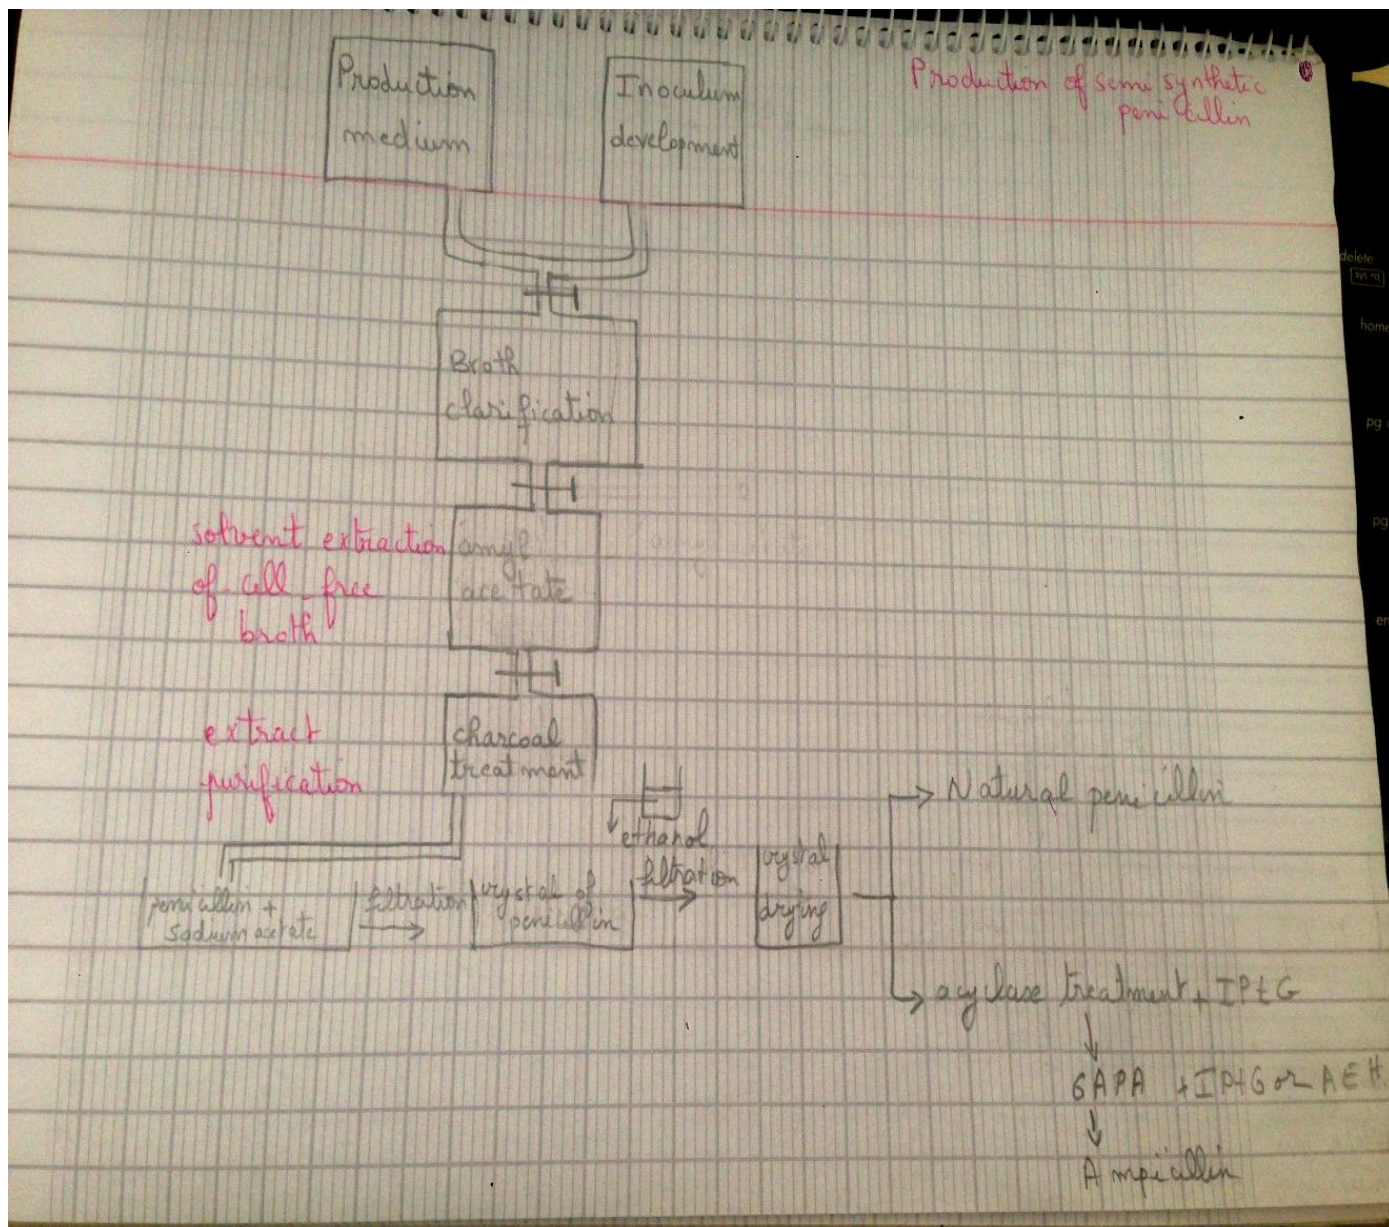 Production of semi synthetic
penicillin
Production
medium
Inoculum
development
Broth
clarification
solvent extraction
of cell-free
broth
amyl
acetate
extract
purification
charcoal
treatment
ethanol
penicillin +
sodium acetate
filtration
crystal of
penicillin
filtration
crystal
drying
Natural penicillin
acylase treatment + IPtG
6APA + IPtG or AEH
Ampicillin
delete
sys rq
home
pg
pg